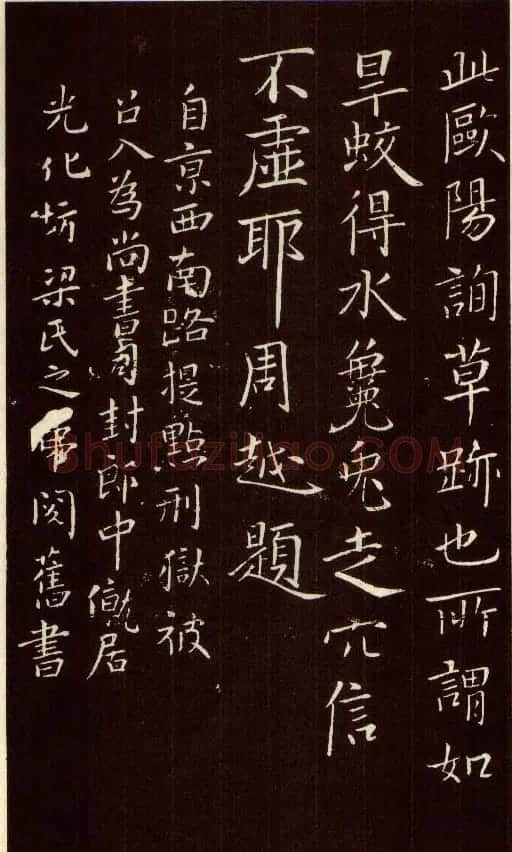 此歐陽詢草跡也所謂如
旱蛟得水毚兔走穴信
不虛耶周越題
自亰西南路提點刑獄被
召入為尚書司封郎中僦居
光化坊梁氏之閱舊書
shufaziliao.COM